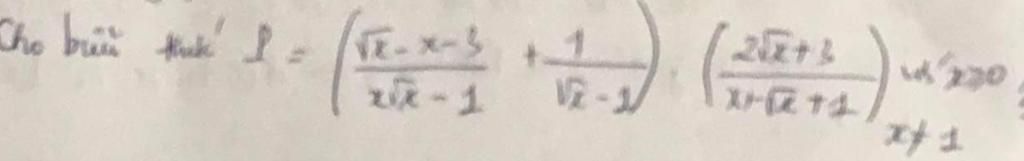 Cho biểu thức P = ((√x - x - 3)/(x√x - 1) + 1/(√x - 1)) . ((2√x + 3)/(x + √x + 1)) với x≥0;
x≠1